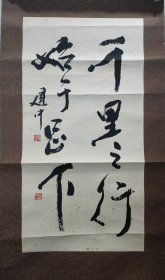 千里之行
始于足下
建中